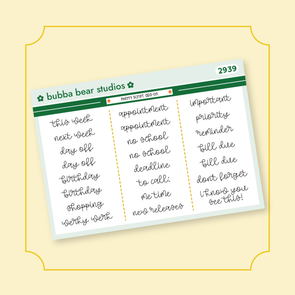 bubba bear studios
2939
this week
next week
day off
day off
birthday
birthday
shopping
werky werk
appointment
appointment
no school
no school
deadline
to call:
me time
new releases
important
priority
reminder
bill due
bill due
don't forget
i know you
see this!